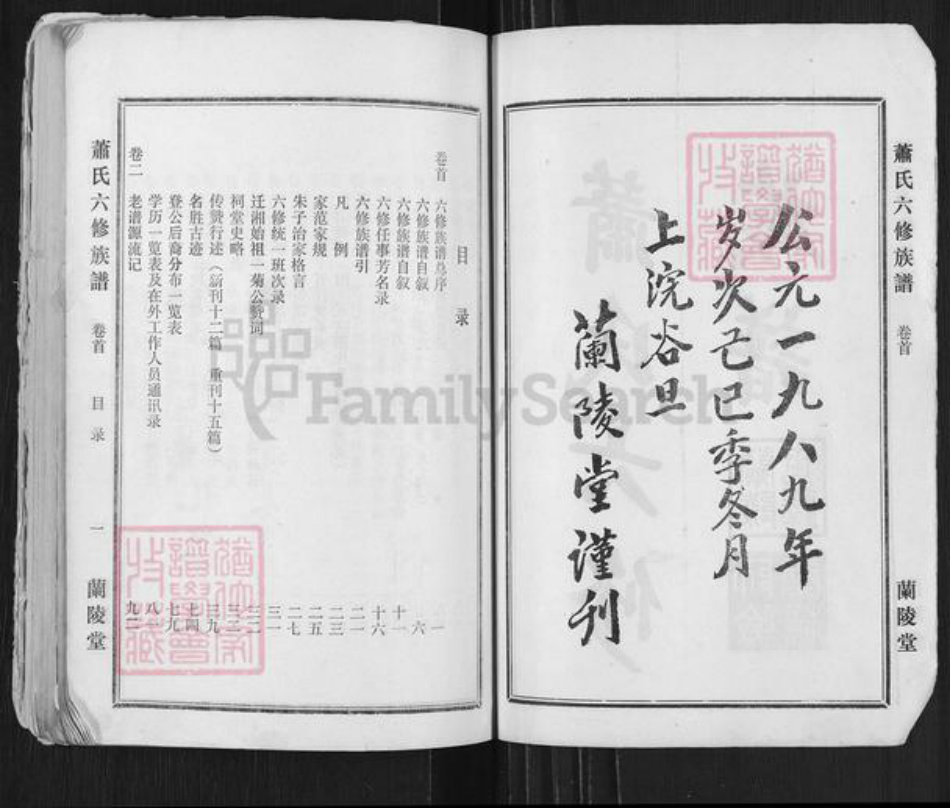 蕭氏六修族譜 卷首
蘭陵堂
公元一九八九年
岁次己巳季冬月
上浣谷旦
蘭陵堂謹刊
目 录
卷首
六修族谱总序 一
六修族谱自叙 六
六修族谱自叙 十一
六修任事芳名录 十六
六修族谱引 二一
凡 例 二三
家范家规 二五
朱子治家格言 二七
六修统一班次录 三一
迁湘始祖一菊公赞词 三二
祠堂史略 三三
传赞行述（新刊十二篇 重刊十五篇） 三九
名胜古迹 七四
登公后裔分布一览表 七九
学历一览表及在外工作人员通讯录 八一
卷二 老谱源流记 九二
蕭氏六修族譜 卷首 目录 一
蘭陵堂
FamilySearch